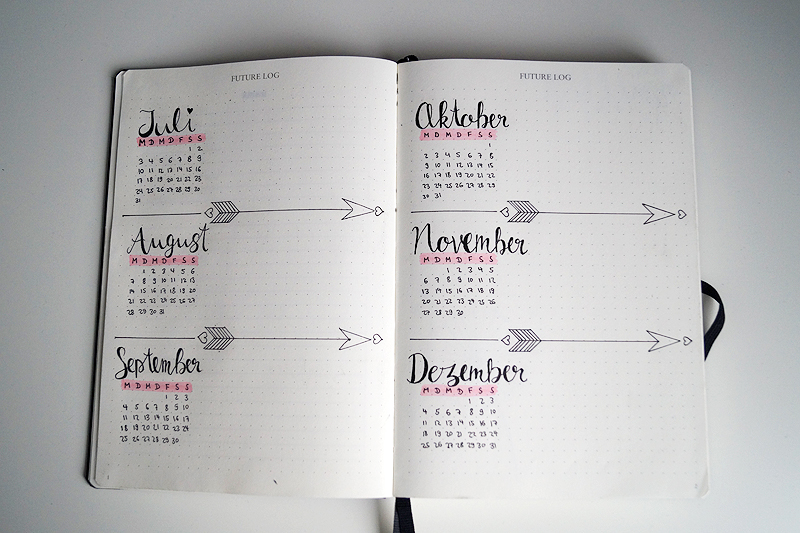 FUTURE LOG
Juli
M D M D F S S
1 2
3 4 5 6 7 8 9
10 11 12 13 14 15 16
17 18 19 20 21 22 23
24 25 26 27 28 29 30
31
August
M D M D F S S
1 2 3 4 5 6
7 8 9 10 11 12 13
14 15 16 17 18 19 20
21 22 23 24 25 26 27
28 29 30 31
September
M D M D F S S
1 2 3
4 5 6 7 8 9 10
11 12 13 14 15 16 17
18 19 20 21 22 23 24
25 26 27 28 29 30
FUTURE LOG
Oktober
M D M D F S S
1
2 3 4 5 6 7 8
9 10 11 12 13 14 15
16 17 18 19 20 21 22
23 24 25 26 27 28 29
30 31
November
M D M D F S S
1 2 3 4 5
6 7 8 9 10 11 12
13 14 15 16 17 18 19
20 21 22 23 24 25 26
27 28 29 30
Dezember
M D M D F S S
1 2 3
4 5 6 7 8 9 10
11 12 13 14 15 16 17
18 19 20 21 22 23 24
25 26 27 28 29 30 31